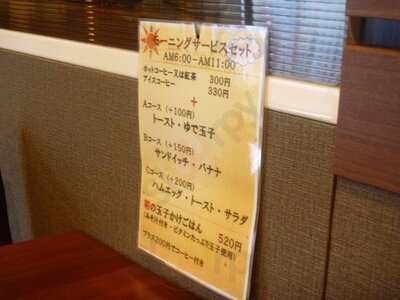 モーニングサービスセット
AM6:00~AM11:00
ホットコーヒー又は紅茶 300円
アイスコーヒー 330円
+
Aコース (+100円)
トースト・ゆで玉子
Bコース (+150円)
サンドイッチ・バナナ
Cコース (+200円)
ハムエッグ・トースト・サラダ
朝の玉子かけごはん 520円
(みそ汁付き・ビタミンたっぷり玉子使用)
プラス200円でコーヒー付き